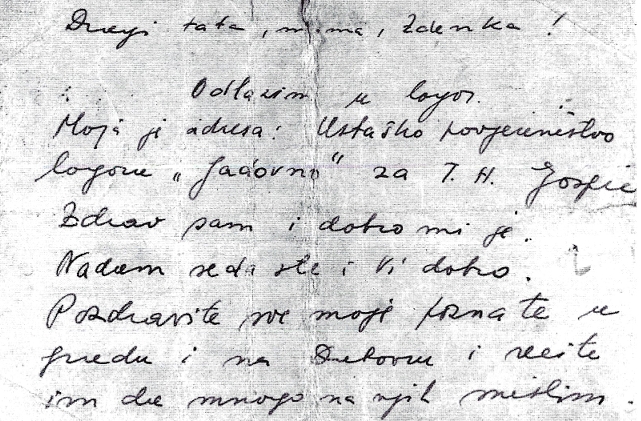 Dragi tata, mama, Zdenka!
Odlazim u logor.
Moja je adresa: Ustaško povjereništvo
logora „Jadovno" za T. H. Gospić
Zdrav sam i dobro mi je.
Nadam se da ste i Vi dobro.
Pozdravite sve moje poznate u
gradu i na i recite
im da mnogo na njih mislim.